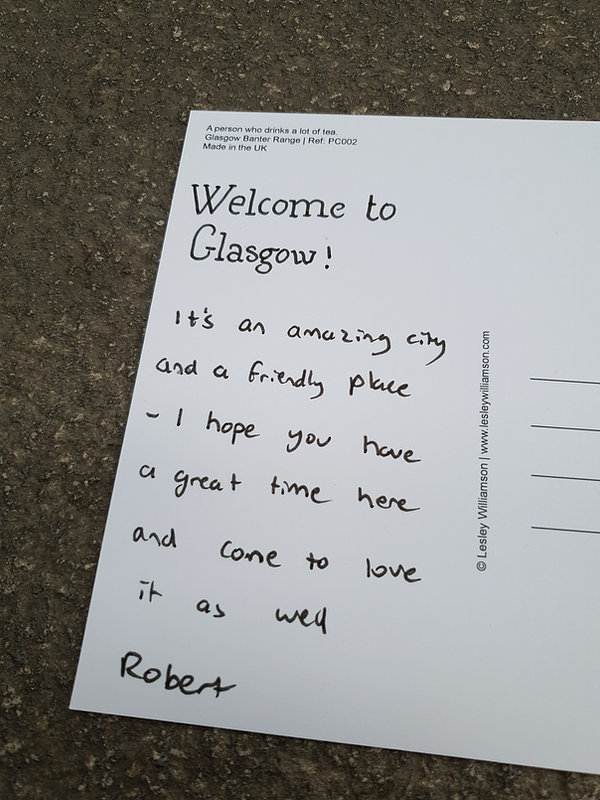 A person who drinks a lot of tea.
Glasgow Banter Range | Ref: PC002
Made in the UK
Welcome to
Glasgow!
It's an amazing city
and a friendly place
- I hope you have
a great time here
and come to love
it as well
Robert
© Lesley Williamson | www.lesleywilliamson.com